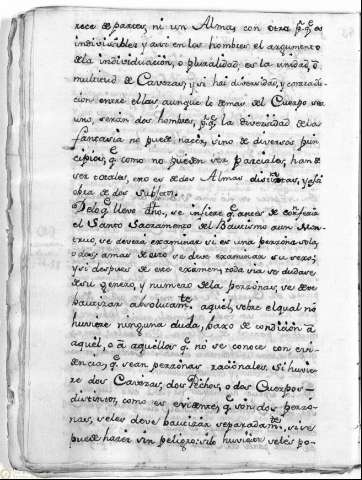 rece de partes, ni un Almas con otra p.q. es
indivisibles y assi en los hombres el argumento
de la individuacion, o pluralidad, es la unidad, ó
multitud de Cavezas, y si hai diversidad, y contradi-
cion entre ellas, aunque lo demas del Cuerpo sea
uno, serán dos hombres, p.q. la diversidad de la
fantasia no puede nacer, sino de diversos prin-
cipios, q. como no pueden ser parciales, han de
ser totales, esto es de dos Almas distintas, y essa
obra de dos
De lo q. lleve dho, se infiere q. antes de conferir
el Santo Sacramento del Bautismo a un Mons-
truo, se deverá examinar si es una perzona sola,
o dos; amas de esto se deve examinar su sexo;
y si despues de este examen, toda via se dudare
de su genero, y numero de las perzonas, se deve
bautizar absolutamte. aquel, sobre el qual no
huviere ninguna duda, baxo de condicion á
aquel, o á aquellos q. no se conoce con evi-
dencia, q. sean perzonas racionales. Si huvie-
re dos Cavezas, dos Pechos, o dos Cuerpos
distintos, como es evidente, q. son dos perzo-
nas, se les deve bautizar separadamte., si se
puede hacer sin peligro: si lo huviere se les po-